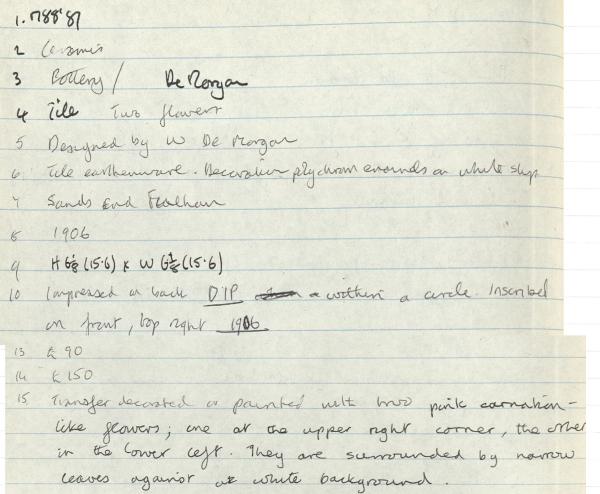 1. 788'87
2 Ceramis
3 Pottery / De Morgan
4 Tile Two flowers
5 Designed by W De Morgan
6 Tile earthenware. Decoration polychrom enamels on white slip
7 Sands End Fulham
8 1906
9 H 6⅛ (15.6) x W 6⅛ (15.6)
10 Impressed on back DIP within a circle. Inscribed
on front, top right 1906.
13 £90
14 £150
15 Transfer decorated or painted with two pink carnation-
like flowers; one at the upper right corner, the other
in the lower left. They are surrounded by narrow
leaves against a white background.